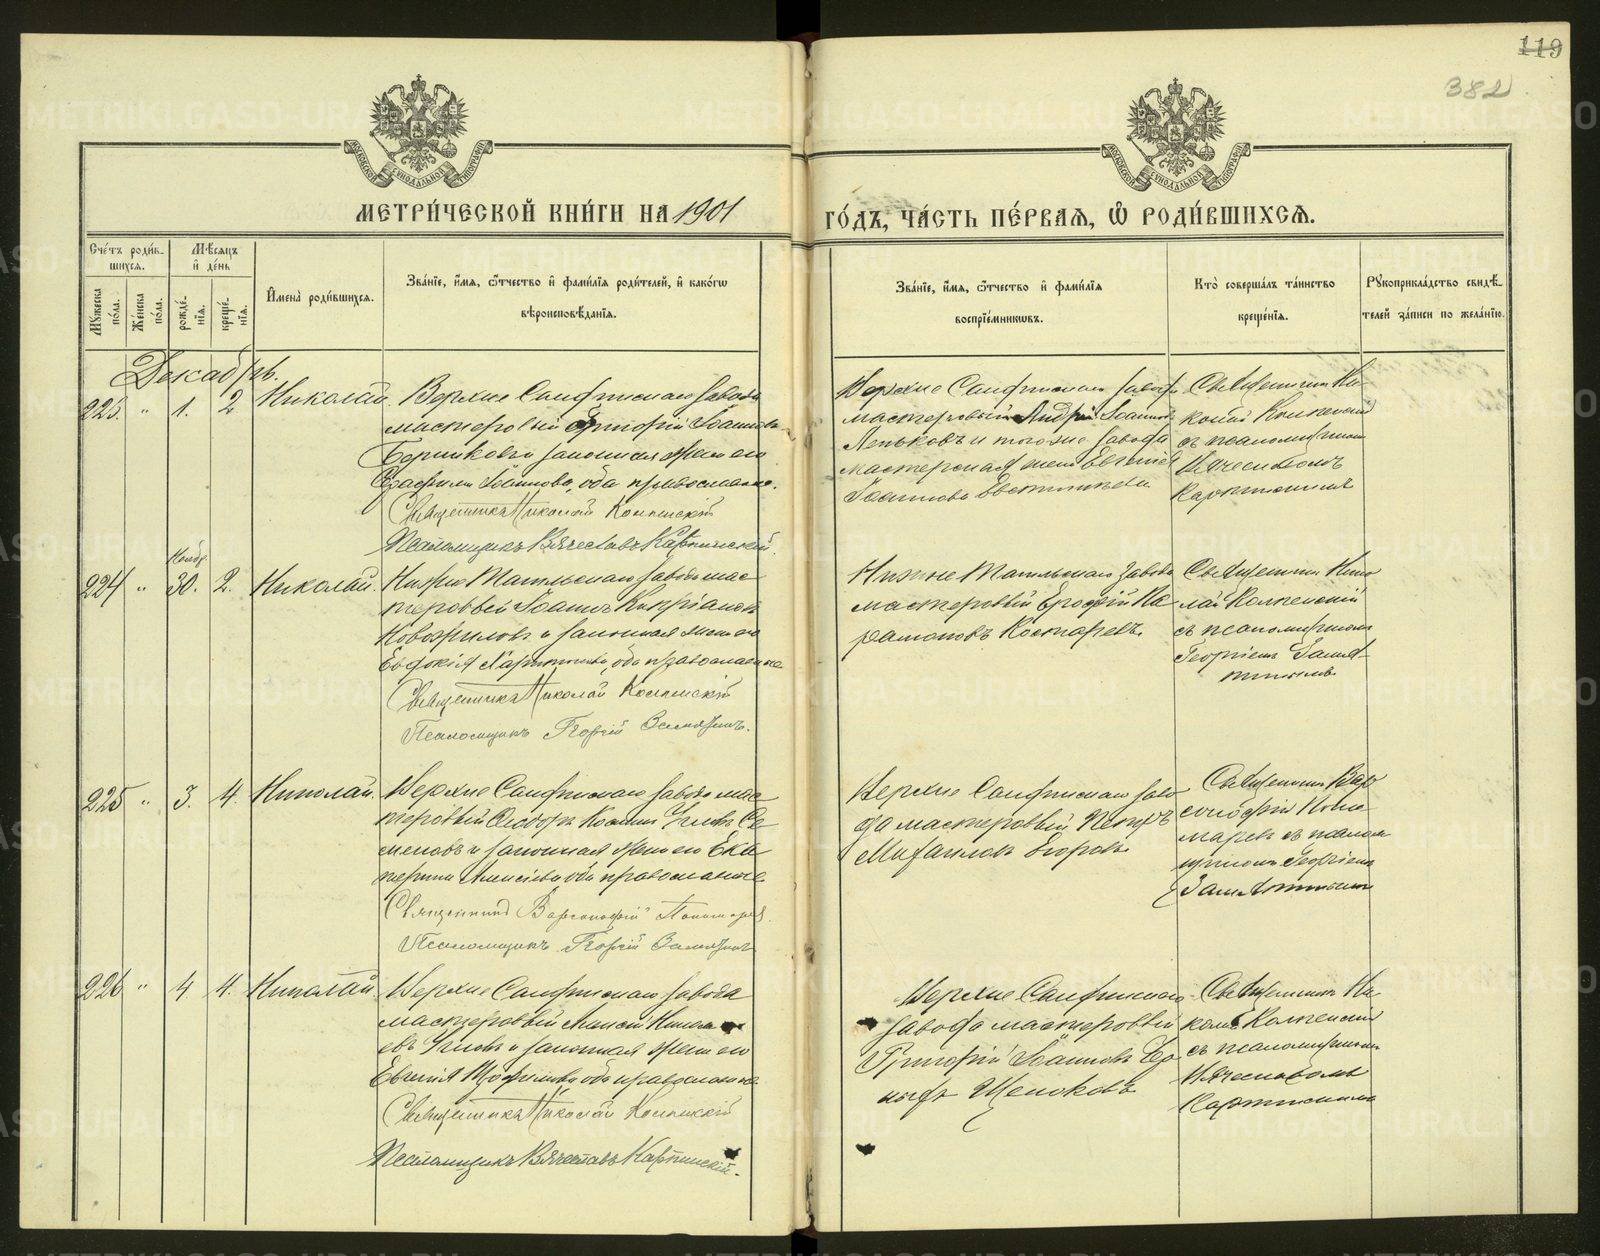 119
382
МЕТРИ́ЧЕСКОЙ КНИ́ГИ НА 1901
ГО́ДЪ, ЧА́СТЬ ПЕ́РВАЯ, Ѽ РОДИ́ВШИХСѦ.
Сче́тъ роди́в-
шихсѧ.
Мѣ́сѧцъ
и҆ де́нь
Мꙋ́жеска по́ла.
Же́нска по́ла.
рожде́-
нїѧ.
креще́-
нїѧ.
И҆мена̀ роди́вшихсѧ.
Зва́нїе, и҆́мѧ, ѻ҆́тчество и҆ фами́лїѧ роди́телей, и҆ како́гѡ
вѣроисповѣ́данїѧ.
Зва́нїе, и҆́мѧ, ѻ҆́тчество и҆ фами́лїѧ
воспрїе́мникѡвъ.
Кто̀ соверша́лъ та́инство
креще́нїѧ.
Рꙋкоприкла́дство свидѣ́-
телей за́писи по жела́нїю.
Декабрь.
223. " 1. 2 Николай.
Верхне Салдинскаго завода
мастеровый Григорій Іоаннов
законная жена его
Іоаннова, оба православные.
Священникъ Николай
Псаломщикъ Вячеславъ Карпинскій.
Верхне Салдинскаго завода
мастеровый Андрей Іоаннов
и того же завода
мастерская жена Евгенія
Іоаннова
Священникъ Ни-
колай
съ псаломщикомъ
Вячеславомъ
Карпинскимъ
Ноябр.
224 " 30. 2. Николай.
Нижне Тагильскаго завода мас-
теровый Іоаннъ Кипріановъ
и законная жена его
Евдокія оба православные
Священникъ Николай
Псаломщикъ Георгій Замятинъ.
Нижне Тагильскаго завода
мастеровый Ерофей Ха-
ритоновъ Костаревъ.
Священникъ Нико-
лай
съ псаломщикомъ
Георгіемъ Замят-
нинымъ
225 " 3. 4. Николай.
Верхне Салдинскаго завода мас-
теровый Ѳеодоръ Косминъ
и законная жена его Ека-
терина Алексіева оба православные
Священникъ Варсонофій Пономаревъ.
Псаломщикъ Георгій Замятинъ
Верхне Салдинскаго заво-
да мастеровый Петръ
Михаиловъ Егоровъ
Священникъ Вар-
сонофій Поно-
маревъ съ псалом-
щикомъ Георгіемъ
Замятнинымъ
226 " 4 4. Николай.
Верхне Салдинскаго завода
мастеровый Алексій Никола-
евъ и законная жена его
Евгенія Трофимова оба православные
Священникъ Николай
Псаломщикъ Вячеславъ Карпинскій.
Верхне Салдинскаго
завода мастеровый
Григорій Іоанновъ
Щелоковъ
Священникъ Ни-
колай
съ псаломщикомъ
Вячеславомъ
Карпинскимъ
METRIKI.GASO-URAL.RU